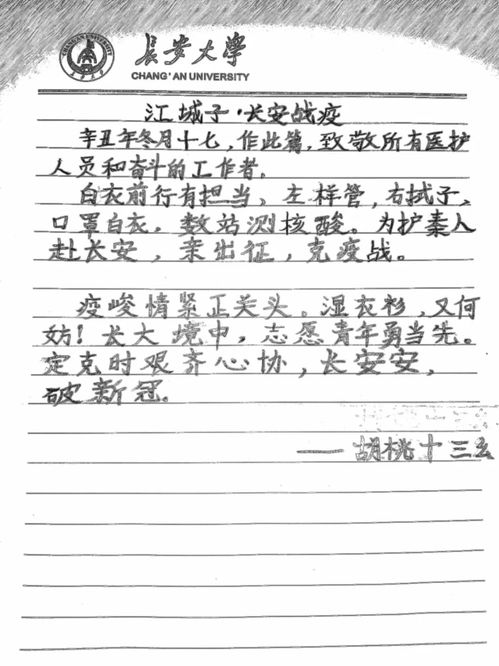 长安大学
CHANG'AN UNIVERSITY
江城子·长安战疫
辛丑年冬月十七,作此篇,致敬所有医护
人员和奋斗的工作者。
白衣前行有担当、左样管,右拭子、
口罩白衣,数站测核酸。为护秦人
赴长安,亲出征,克疫战。
疫峻情紧正关头。湿衣衫,又何
妨!长大境中,志愿青年勇当先。
定克时艰齐心协,长安安,
破新冠。
——胡桃十三幺